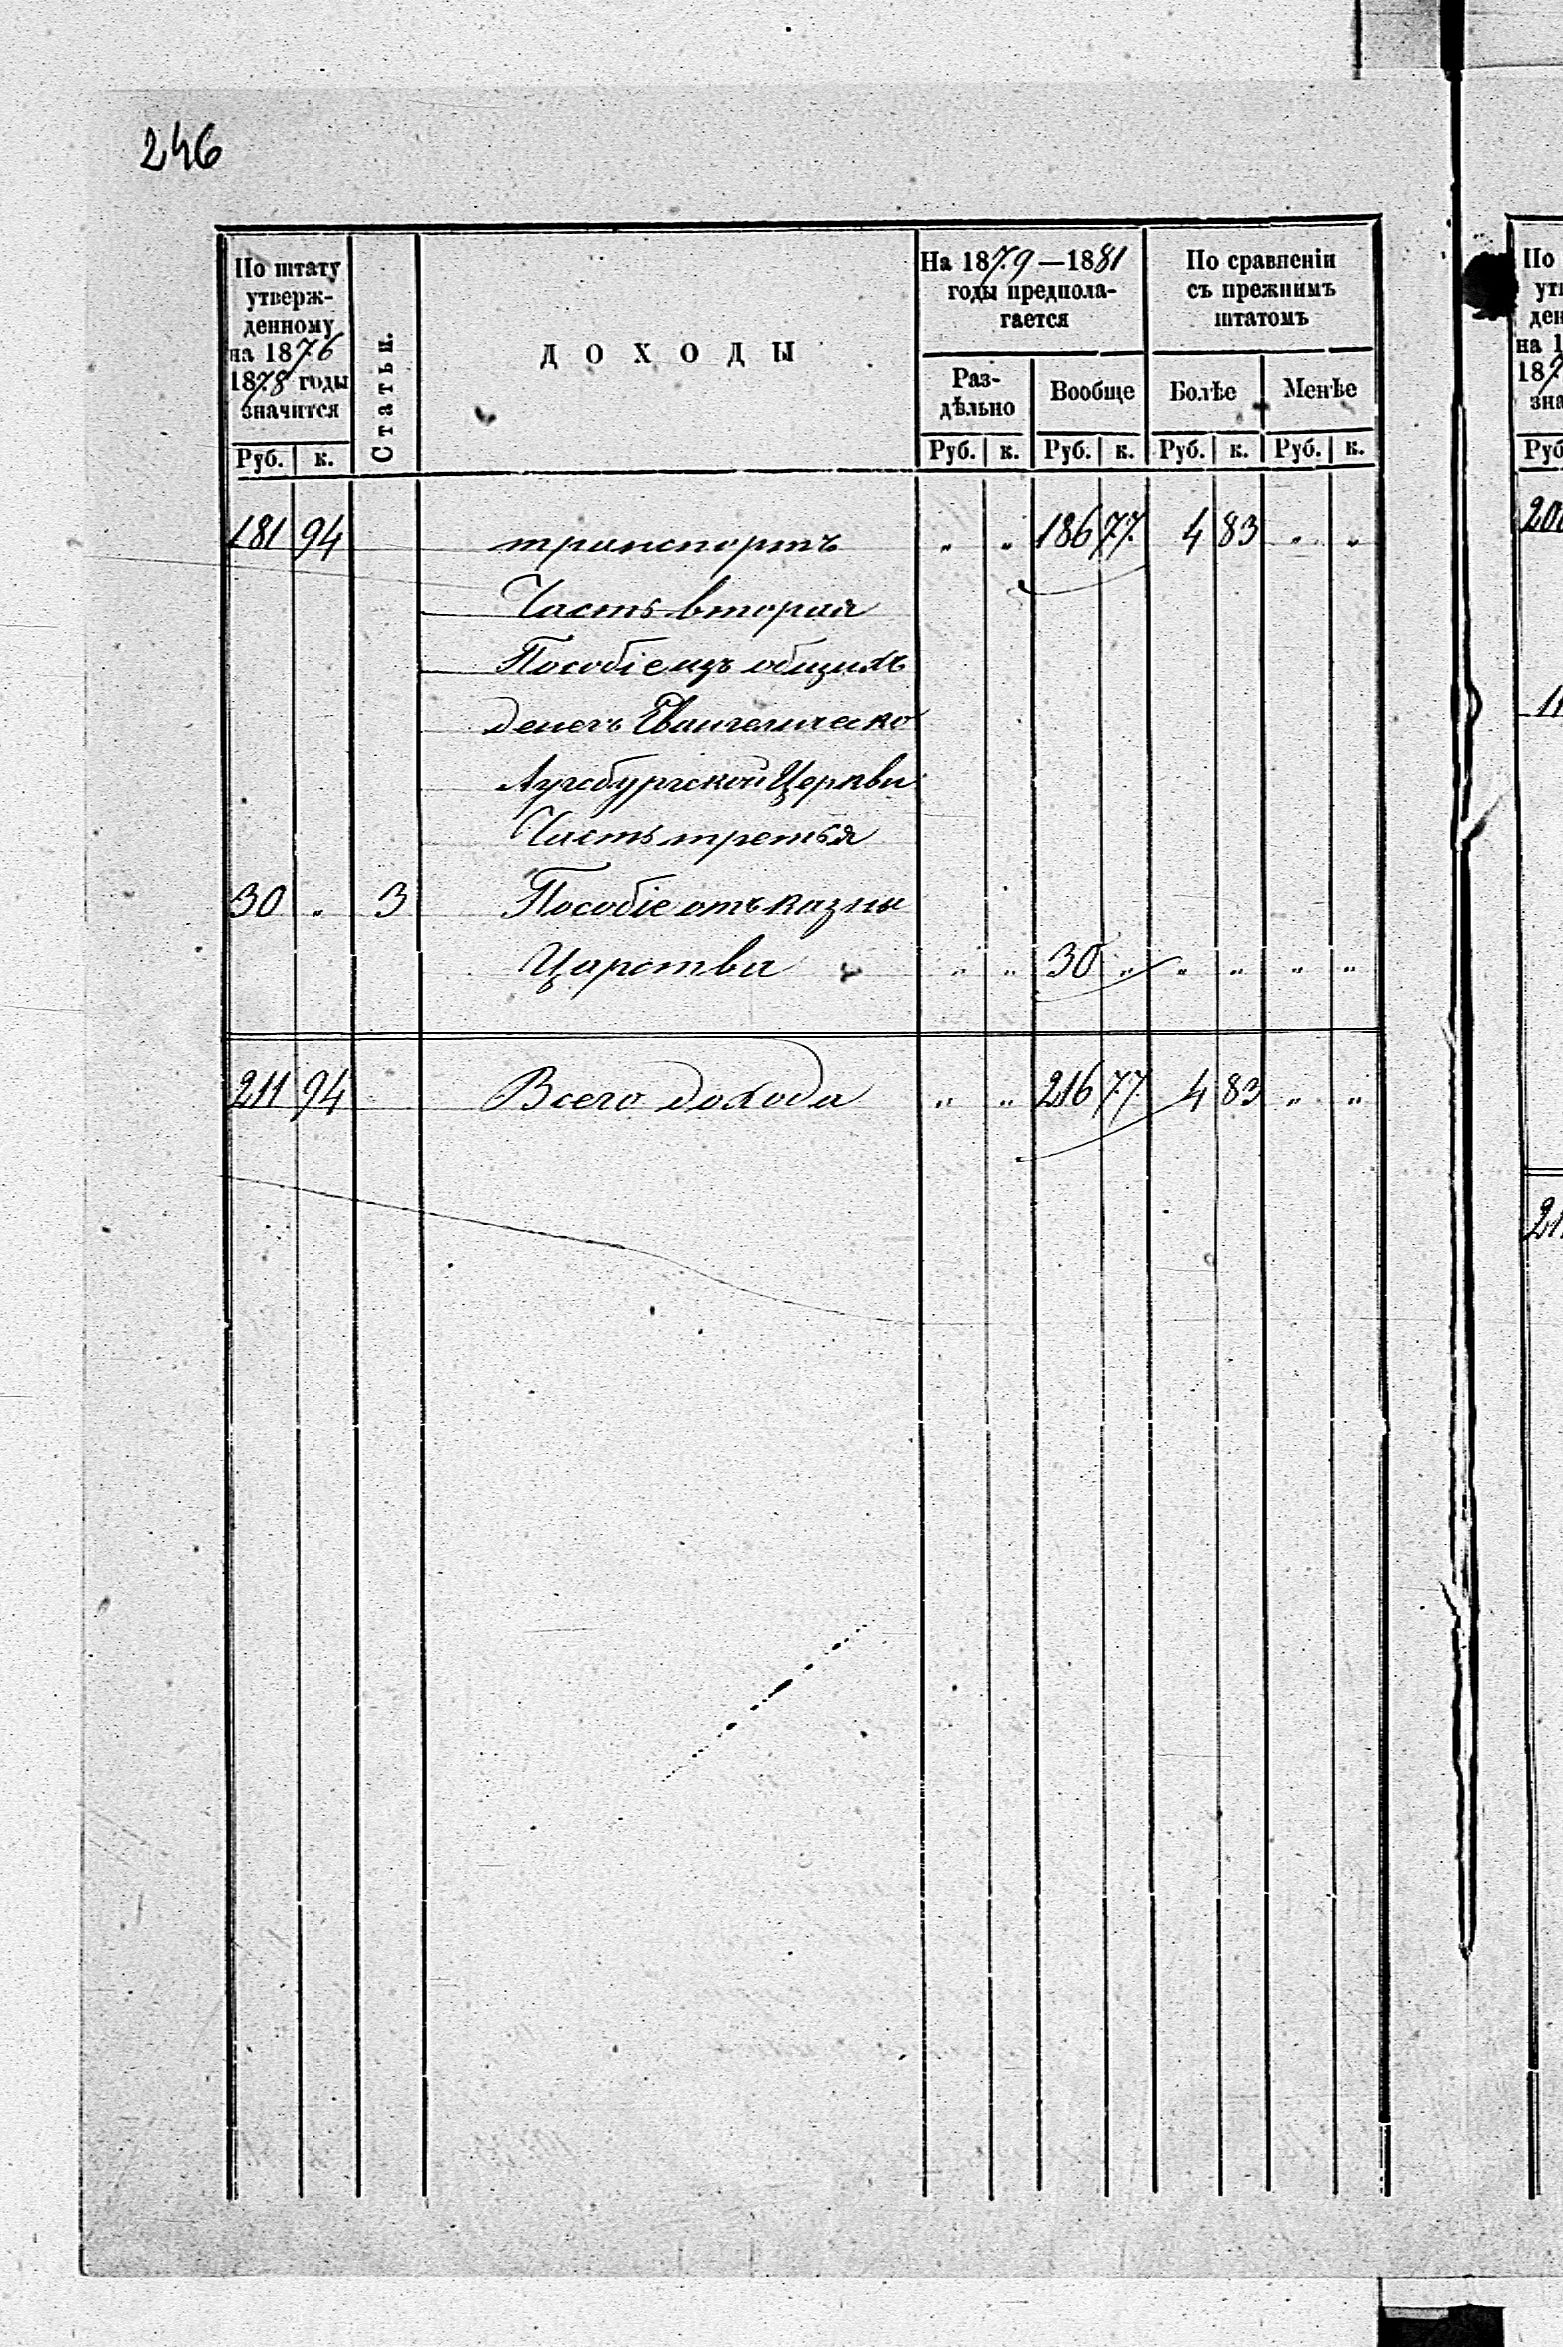 246
По штату
утверж-
денному
на 1876
1878 годы
значится
Руб. к.
Статьи.
ДОХОДЫ
На 1879—1881
годы предпола-
гается
Раз-
дѣльно
Руб. к.
Вообще
Руб. к.
По сравненіи
съ прежнимъ
штатомъ
Болѣе
Руб. к.
Менѣе
Руб. к.
181 94 транспортъ „ „ 186 77 4 83 „ „
Часть вторая
Пособіе изъ общихъ
денегъ Евангелическо
Аугсбургской Церкви
Часть третья
30 „ 3 Пособіе отъ казны
Царства „ „ 30 „ „ „ „ „
211 94 Всего дохода „ „ 216 77 4 83 „ „
По
ут
ден
на 1
187
зна
Руб
200
11
21